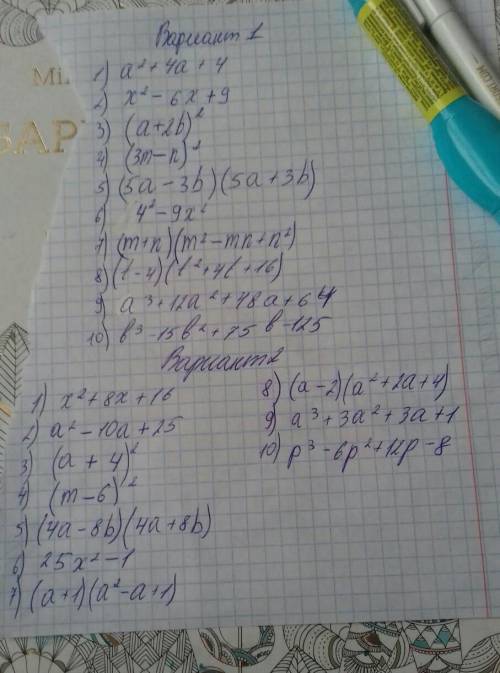 Вариант 1
1) a² + 4a + 4
2) x² - 6x + 9
3) (a+2b)²
4) (3m-n)²
5) (5a-3b)(5a+3b)
6) 4² - 9x²
7) (m+n)(m²-mn+n²)
8) (t-4)(t²+4t+16)
9) a³+12a²+48a+64
10) b³-15b²+75b-125
Вариант 2
1) x²+8x+16
2) a²-10a+25
3) (a+4)²
4) (m-6)²
5) (4a-8b)(4a+8b)
6) 25x²-1
7) (a+1)(a²-a+1)
8) (a-2)(a²+2a+4)
9) a³+3a²+3a+1
10) p³-6p²+12p-8